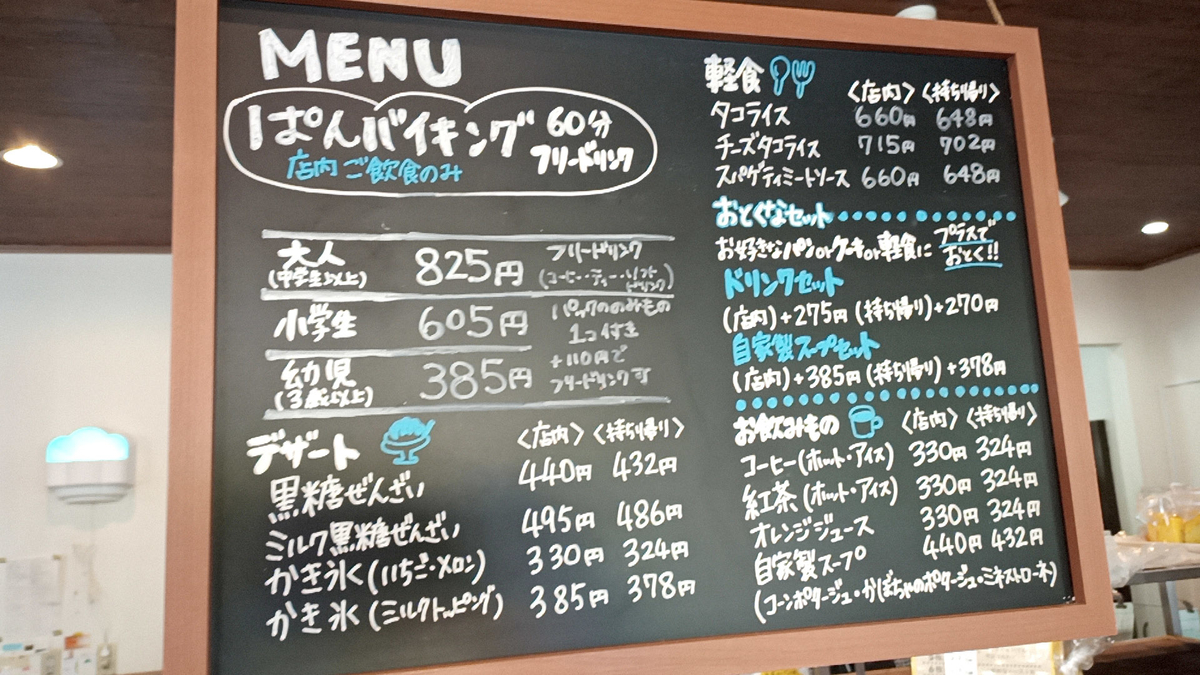 MENU
ぱんバイキング 60分
フリードリンク
店内ご飲食のみ
大人 825円 フリードリンク
(中学生以上) (コーヒー・ティー・ソフト
ドリンク)
小学生 605円 パックののみもの
1コ付き
幼児 385円 +110円で
(3歳以上) フリードリンク可
デザート 〈店内〉 〈持ち帰り〉
黒糖ぜんざい 440円 432円
ミルク黒糖ぜんざい 495円 486円
かき氷(いちご・メロン) 330円 324円
かき氷(ミルクトッピング) 385円 378円
軽食 〈店内〉 〈持ち帰り〉
タコライス 660円 648円
チーズタコライス 715円 702円
スパゲティミートソース 660円 648円
おとくなセット
お好きなパンorケーキor軽食に プラスで
おとく!!
ドリンクセット
(店内)+275円 (持ち帰り)+270円
自家製スープセット
(店内)+385円 (持ち帰り)+378円
お飲みもの 〈店内〉 〈持ち帰り〉
コーヒー(ホット・アイス) 330円 324円
紅茶(ホット・アイス) 330円 324円
オレンジジュース 330円 324円
自家製スープ 440円 432円
(コーンポタージュ・かぼちゃのポタージュ・ミネストローネ)